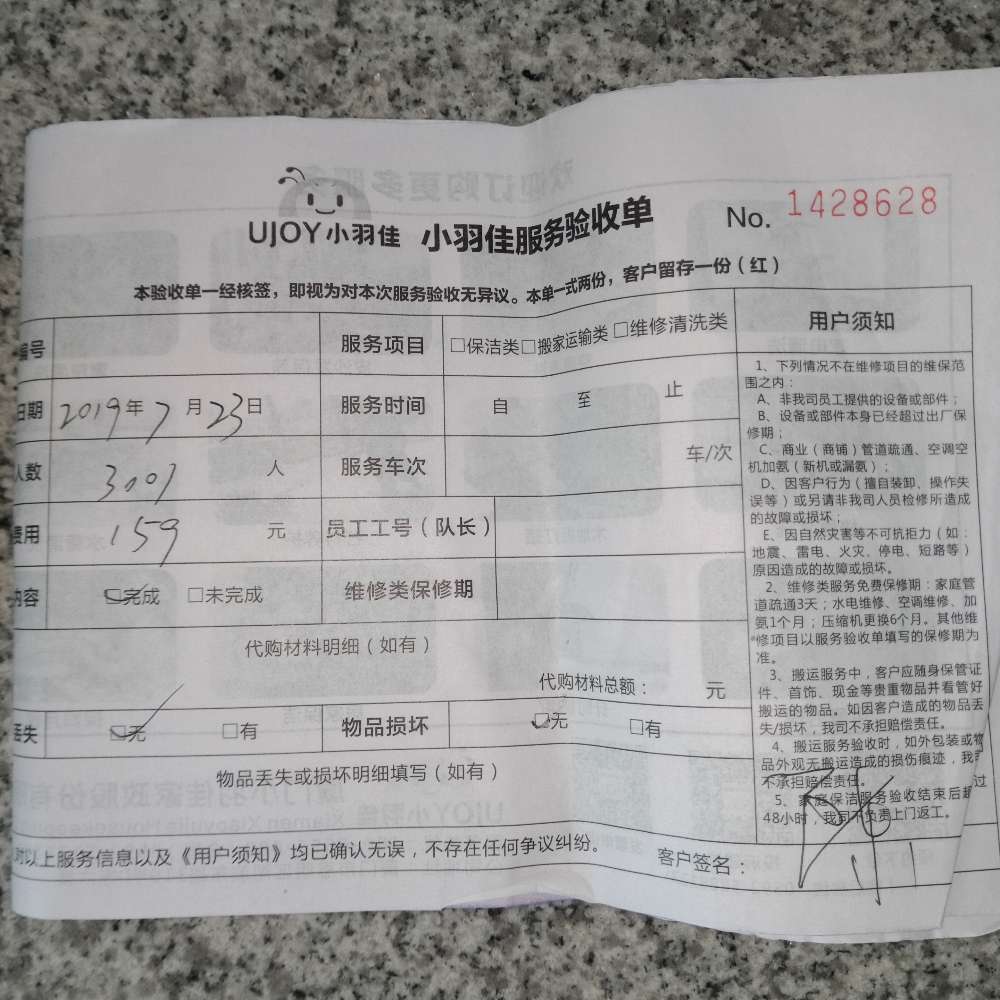 UJOY小羽佳 小羽佳服务验收单 No. 1428628
本验收单一经核签，即视为对本次服务验收无异议。本单一式两份，客户留存一份（红）
编号 服务项目 □保洁类□搬家运输类□维修清洗类
日期 2019年7月23日 服务时间 自 至 止
人数 人 服务车次 车/次
费用 159 元 员工工号（队长）
内容 □完成 □未完成 维修类保修期
代购材料明细（如有）
代购材料总额： 元
丢失 □无 □有 物品损坏 □无 □有
物品丢失或损坏明细填写（如有）
对以上服务信息以及《用户须知》均已确认无误，不存在任何争议纠纷。 客户签名：
用户须知
1、下列情况不在维修项目的维保范
围之内：
A、非我司员工提供的设备或部件；
B、设备或部件本身已经超过出厂保
修期；
C、商业（商铺）管道疏通、空调空
机加氨（新机或漏氨）；
D、因客户行为（擅自装卸、操作失
误等）或另请非我司人员检修所造成
的故障或损坏；
E、因自然灾害等不可抗拒力（如：
地震、雷电、火灾、停电、短路等）
原因造成的故障或损坏。
2、维修类服务免费保修期：家庭管
道疏通3天；水电维修、空调维修、加
氨1个月；压缩机更换6个月。其他维
修项目以服务验收单填写的保修期为
准。
3、搬运服务中，客户应随身保管证
件、首饰、现金等贵重物品并看管好
搬运的物品。如因客户造成的物品丢
失/损坏，我司不承担赔偿责任。
4、搬运服务验收时，如外包装或物
品外观无搬运造成的损伤痕迹，我司
不承担赔偿责任。
5、家庭保洁服务验收结束后超过
48小时，我司不负责上门返工。